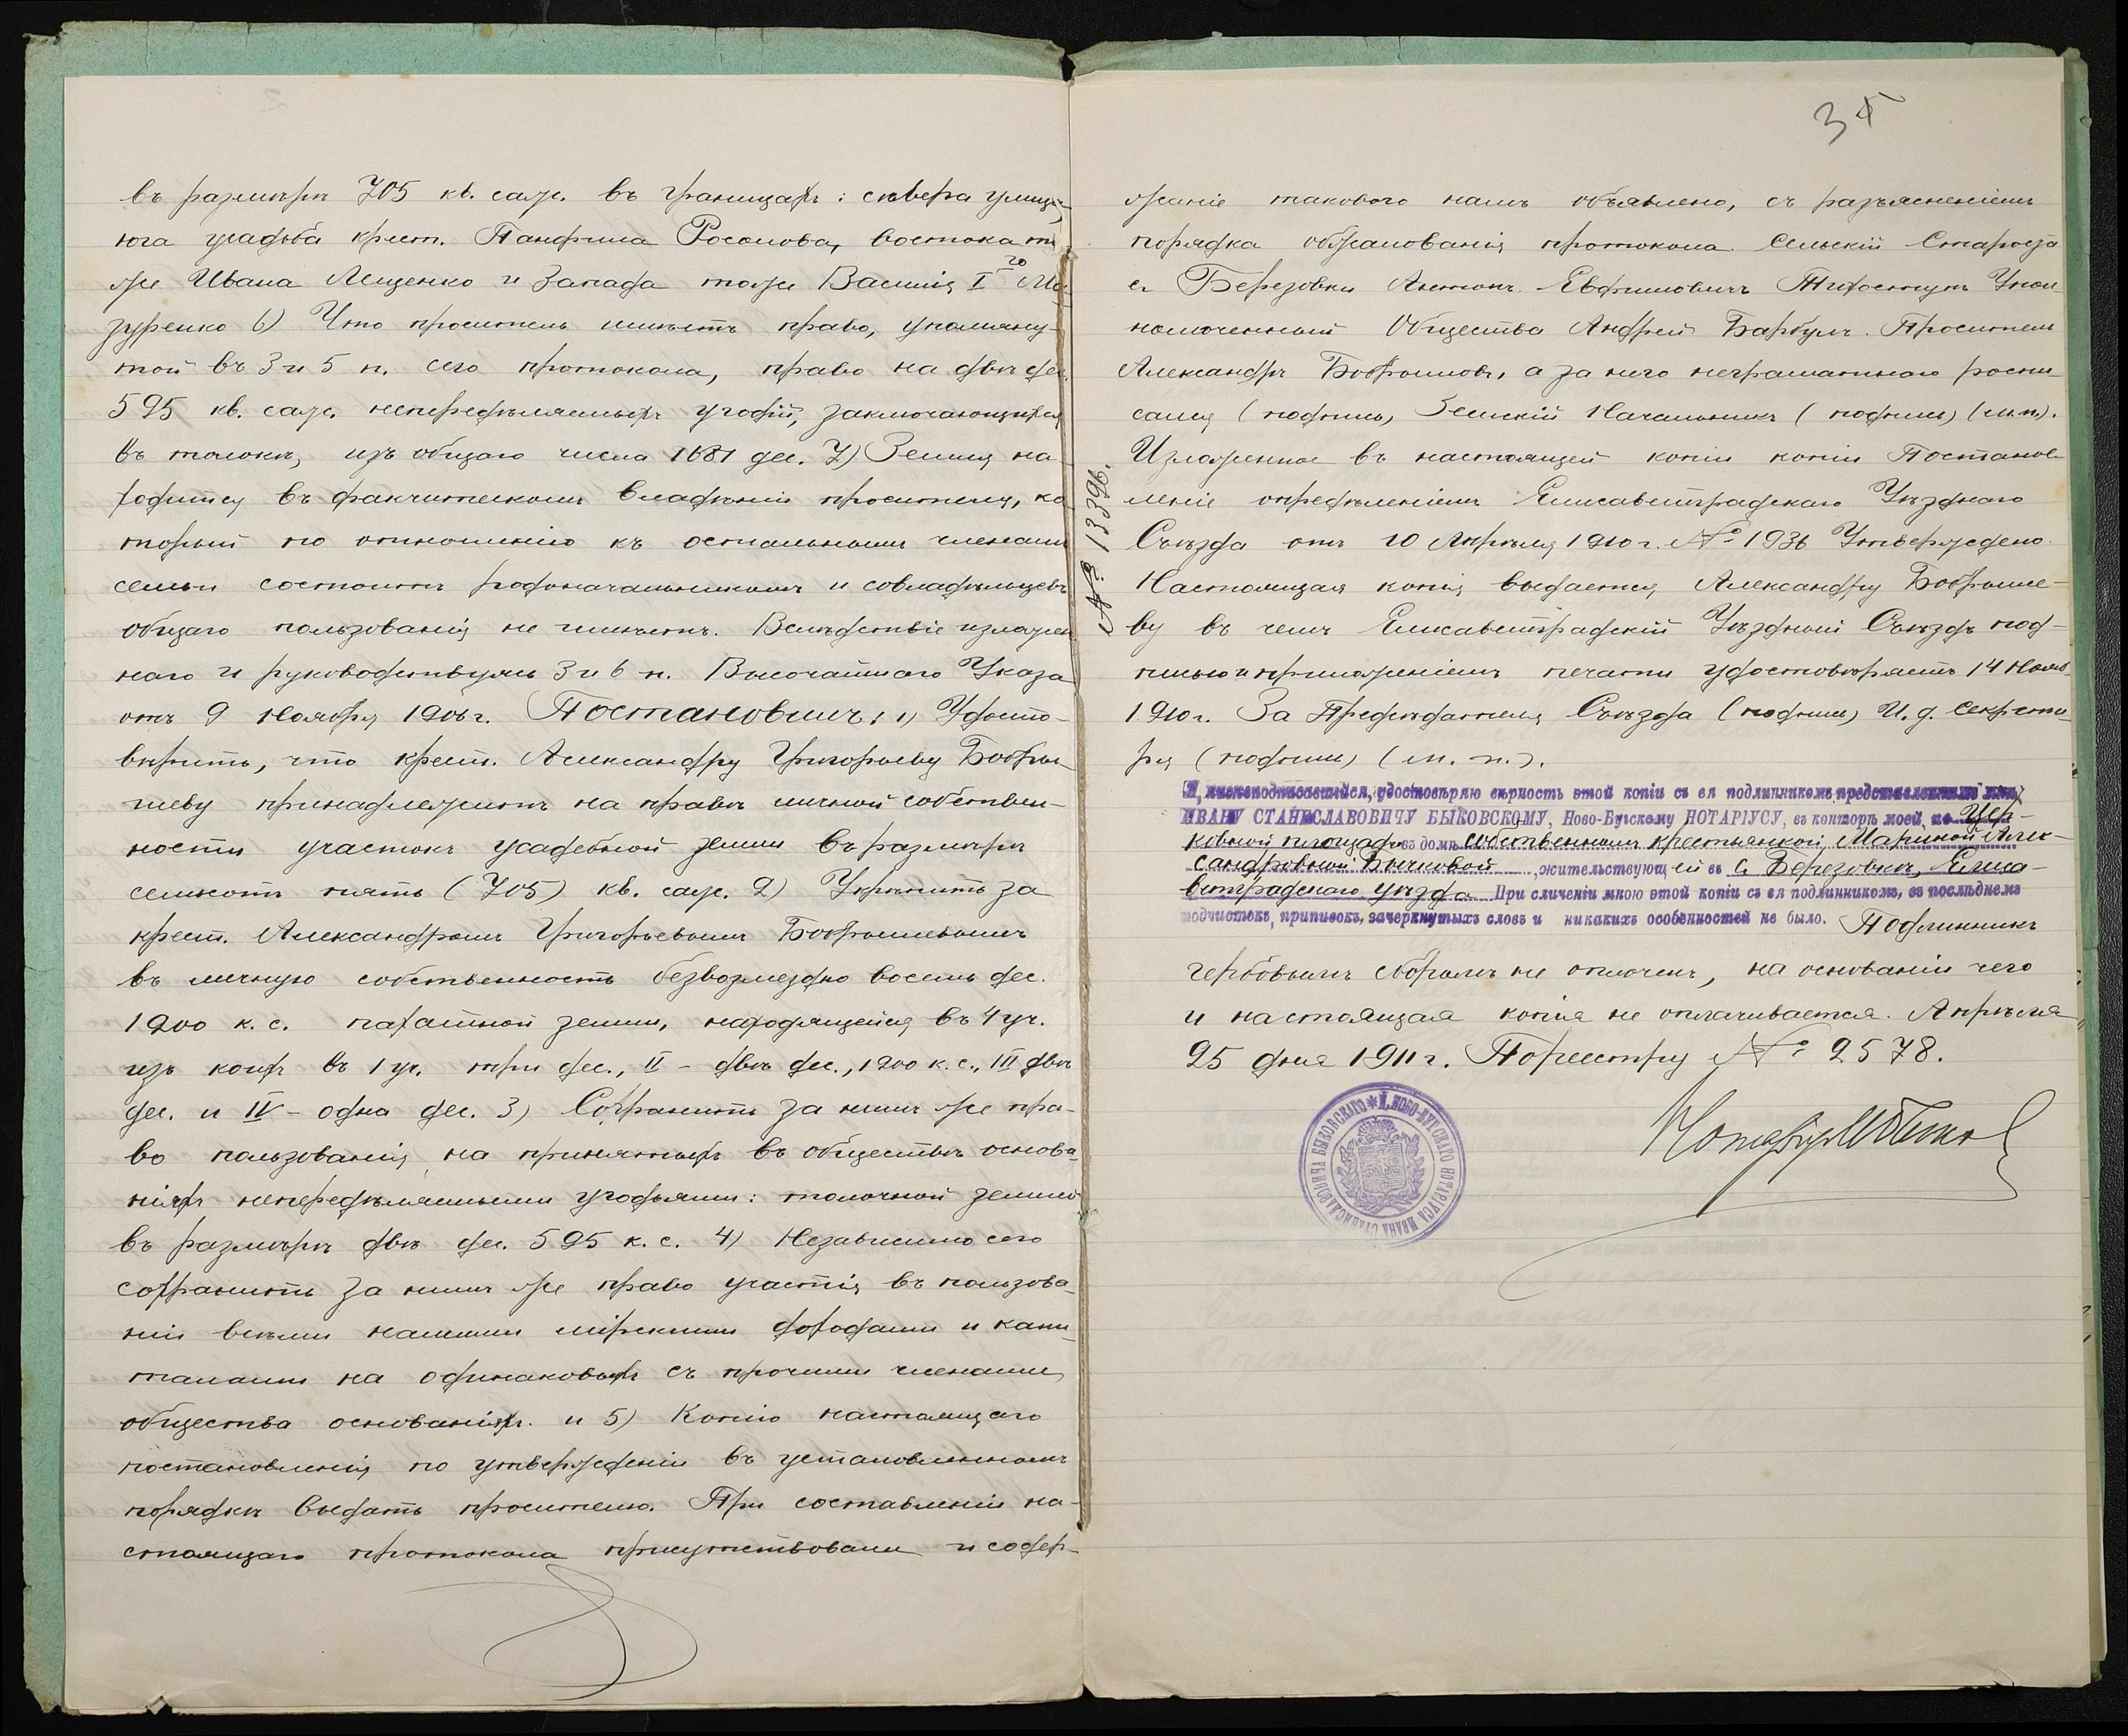 въ размѣрѣ 705 кв. саж. въ границахъ: сѣвера улица,
юга усадьба крест. Панфила Росолова, востока то
же Ивана Лещенко и запада тоже Василія I го Ма-
зуренко 6) Что проситель имѣетъ право, упомяну-
той въ 3 и 5 п. сего протокола, право на двѣ дес.
595 кв. саж. непередѣляемыхъ угодій, заключающихся
въ толокѣ, изъ общаго числа 1681 дес. 7) Земля на
ходится въ фактическомъ владѣніи просителя, ко
торый по отношенію къ остальнымъ членамъ
семьи состоитъ родоначальникомъ и совладѣльцевъ
общаго пользованія не имѣетъ. Вслѣдствіе изложен
наго и руководствуясь 3 и 6 п. Высочайшаго Указа
отъ 9 Ноября 1906 г. Постановилъ: 1) Удосто-
вѣрить, что крест. Александру Григорьеву Бобры-
шеву принадлежитъ на правѣ личной собствен-
ности участокъ усадебной земли въ размѣрѣ
семьсотъ пять (705) кв. саж. 2) Укрѣпить за
крест. Александромъ Григорьевымъ Бобрышевымъ
въ личную собственность безвозмездно восемь дес.
1200 к. с. пахатной земли, находящейся въ 4 уч.
изъ коихъ въ 1 уч. три дес., II - двѣ дес., 1200 к. с., III двѣ
дес. и IV - одна дес. 3) Сохранить за нимъ же пра-
во пользованія на принятыхъ въ обществѣ основа-
ніяхъ непередѣляемыми угодьями: толочной землею
въ размѣрѣ двѣ дес. 595 к. с. 4) Независимо сего
сохранить за нимъ же право участія въ пользова-
ніи всѣми мірскими доходами и капи-
талами на одинаковыхъ съ прочими членами
общества основаніяхъ. и 5) Копію настоящаго
постановленія по утвержденіи въ установленномъ
порядкѣ выдать просителю. При составленіи на-
стоящаго протокола присутствовали и содер-
3
жаніе такового намъ объявлено, съ разъясненіемъ
порядка обжалованія протокола. Сельскій Староста
с. Березовки Антонъ Евфимовичъ Упол
номоченный Общества Андрей Барбулъ. Проситель
Александръ Бобрышевъ, а за него неграмотнаго роспи
сался (подпись) Земскій Начальникъ (подпись) (м.п.).
Изложенное въ настоящей копіи копіи Постанов
леніе опредѣленіемъ Елисаветградскаго Уѣзднаго
Съѣзда отъ 10 Апрѣля 1910 г. № 1936 Утверждено.
Настоящая копія выдается Александру Бобрыше-
ву въ чемъ Елисаветградскій Уѣздный Съѣздъ под-
писью и приложеніемъ печати удостовѣряетъ 14
1910 г. За Предсѣдателя Съѣзда (подпись) И. д. Секрета-
ря (подпись) (м. п.).
№ 13396.
Я, нижеподписавшійся, удостовѣряю вѣрность этой копіи съ ея подлинникомъ представленнымъ мнѣ
ИВАНУ СТАНИСЛАВОВИЧУ БЫКОВСКОМУ, Ново-Бугскому НОТАРІУСУ, въ конторѣ моей, по Цер-
ковной площади въ домѣ собственномъ крестьянкой Мариной Алек-
сандровной Бычковой, жительствующей въ с. Березовкѣ, Елиса-
ветградскаго уѣзда При сличеніи мною этой копіи съ ея подлинникомъ, въ послѣднемъ
подчистокъ, приписокъ, зачеркнутыхъ словъ и никакихъ особенностей не было. Подлинникъ
гербовымъ сборомъ не оплоченъ, на основаніи чего
и настоящая копія не оплачивается. Апрѣля
25 дня 1911 г. По реестру № 2578.
Нотаріусъ
* И. НОВО-БУГСКАГО НОТАРІУСА ИВАНА СТАНИСЛАВОВИЧА БЫКОВСКАГО